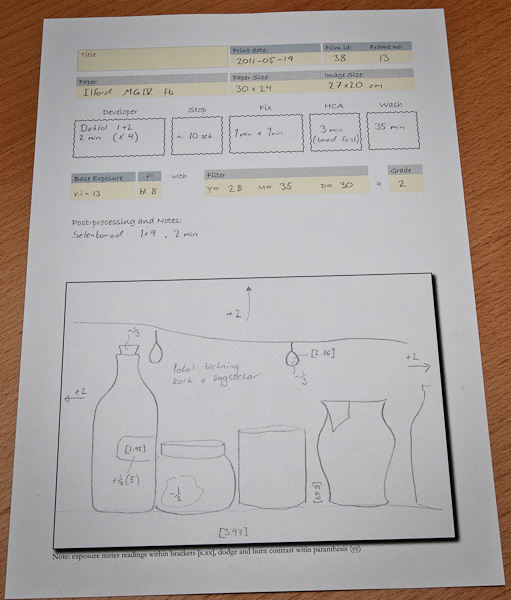 Title
Print date: Film id: Frame no:
2011-05-19 38 13
Paper: Paper Size: Image Size:
Ilford MGIV fb 30 x 24 27x20 cm
Developer Stop Fix HCA Wash
Doktol 1+2 ~ 10 sek 1 min + 1 min 3 min 35 min
2 min (x 4) (toned först)
Base Exposure f° with Filter Grade
v.i = 13 bl 8 Y= 28 M= 35 D= 30 ≈ 2
Post-processing and Notes:
Selentonad 1+9, 2 min
+2
-1/3
[2.76]
+2
-1/3
+2
kork + äggsöckar
[1.95]
+1/3 (5)
-1/3
[3.97]
Note: exposure meter readings within brackets [x.xx], dodge and burn contrast witin paranthesis (yy)